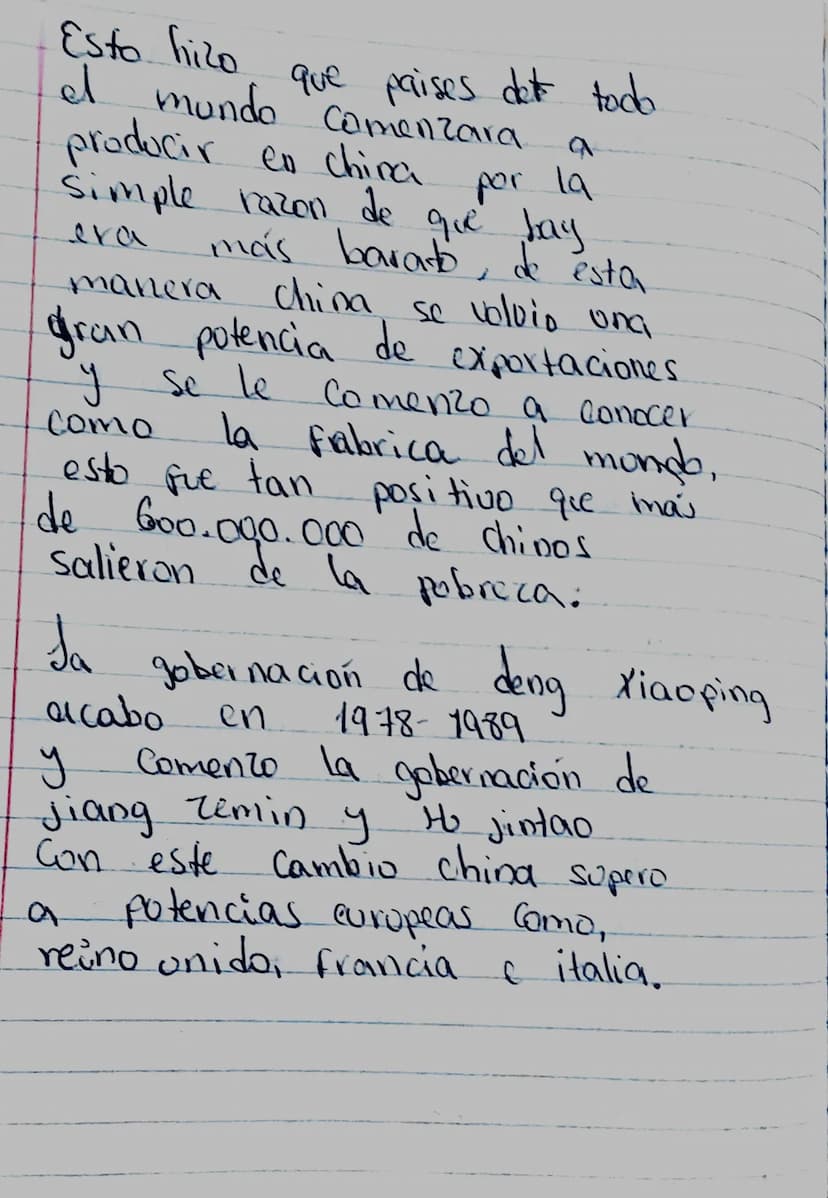 Esto hizo que paises det todo
el mundo comenzara a
producir en china por la
simple razon de que hay
era más barato, de esta
manera china se volvio una
gran potencia de exportaciones
y se le comenzo a conocer
como la fabrica del mundo,
esto fue tan positivo que más
de 600.000.000 de chinos
salieron de la pobreza.
La gobernación de deng xiaoping
acabo en 1978-1989
y comenzo la gobernación de
jiang zemin y Hu jintao
Con este cambio china supero
a potencias europeas como,
reino unido, francia e italia.